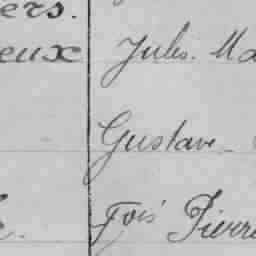 ers.
eux Jules. Ma
Gustave
Fois Pierre